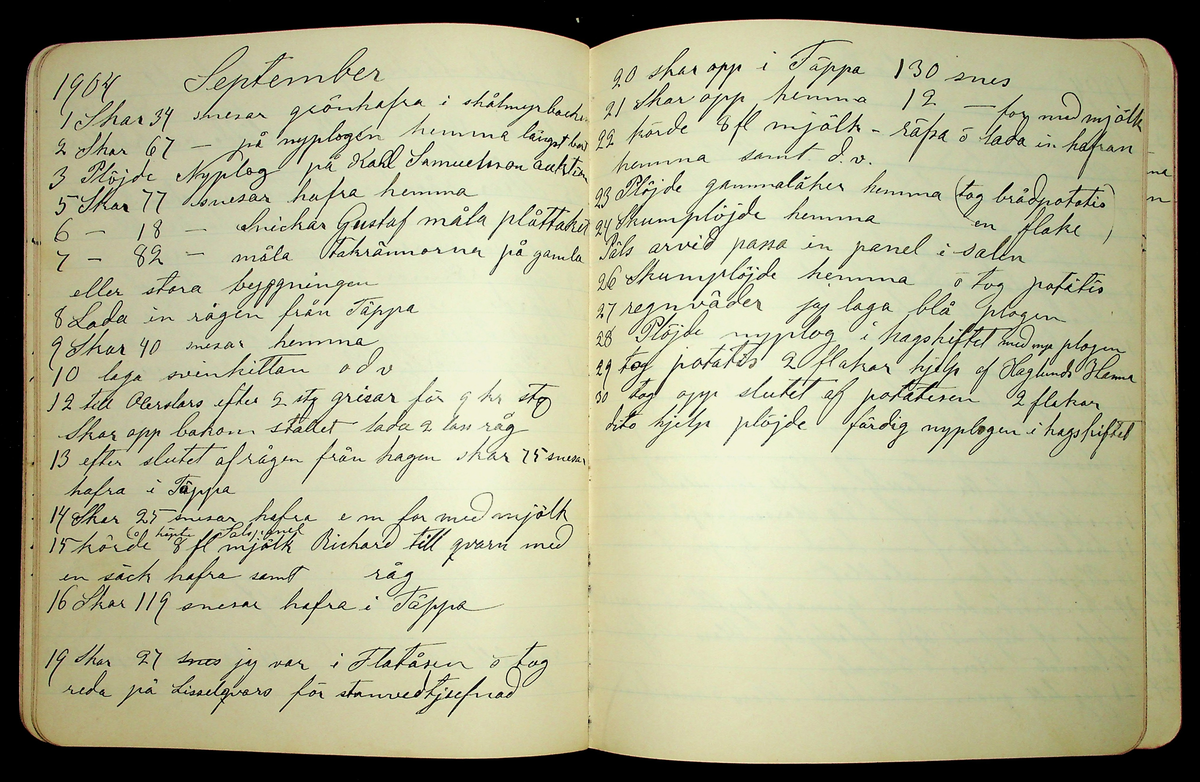 1904 September
1 Skar 34 snesar grönhafra i skålmyrbacken
2 Skar 67 — på nyplogen hemma längst bort
3 Plöjde Nyplog på Karl Samuelsson auktion
5 Skar 77 snesar hafra hemma
6 — 18 — Snickar Gustaf måla plåttaket
7 — 82 — måla takrännorna på gamla
eller stora byggningen
8 Lada in rågen från Täppa
9 Skar 40 snesar hemma
10 laga svenkittan o d v
12 till Olerslars efter 2 stg grisar för 9 kr stg
Skar opp bakom stallet lada 2 las råg
13 efter slutet af rågen från hagen skar 75 snesar
hafra i Täppa
14 Skar 25 snesar hafra e m for med mjölk
o köpte
15 körde 8 fl mjölk Richard till qvarn med
en säck hafra samt råg
16 Skar 119 snesar hafra i Täppa
19 Skar 27 snes jg var i Flatåsen o tog
reda på Lisselqvars för
20 skar opp i Täppa 130 snes
21 Skar opp hemma 12 — for med mjölk
22 körde 8 fl mjölk — räfsa o lada in hafran
hemma samt d.v.
23 Plöjde gammalåker hemma (tog brådpotatis
24 Skumplöjde hemma en flake )
Påls arvid passa in panel i salen
26 Skumplöjde hemma o tog potatis
27 regnväder jg laga blå plogen
28 Plöjde nyplog i hagskiftet med nya plogen
29 tog potatis 2 flakar hjelp af Haglunds Hanna
30 tog opp slutet af potatisen 2 flakar
dito hjelp plöjde färdig nyplogen i hagskiftet